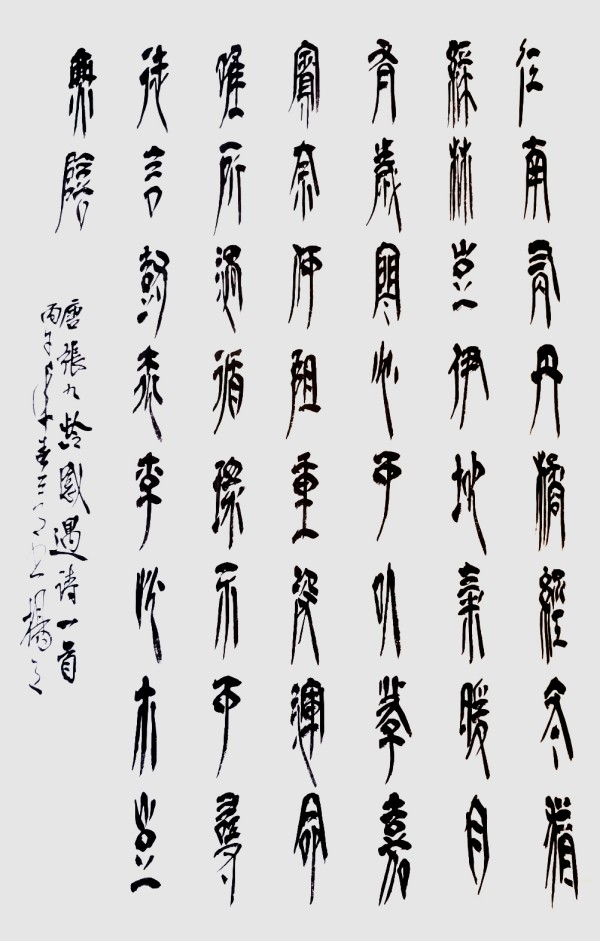 江南有丹橘經冬猶
綠林豈伊地氣暖自
有歲寒心可以薦嘉
賓奈何阻重深運命
惟所遇循環不可尋
徒言樹桃李此木豈
無陰
唐張九齡感遇詩一首
丙午春三月楊